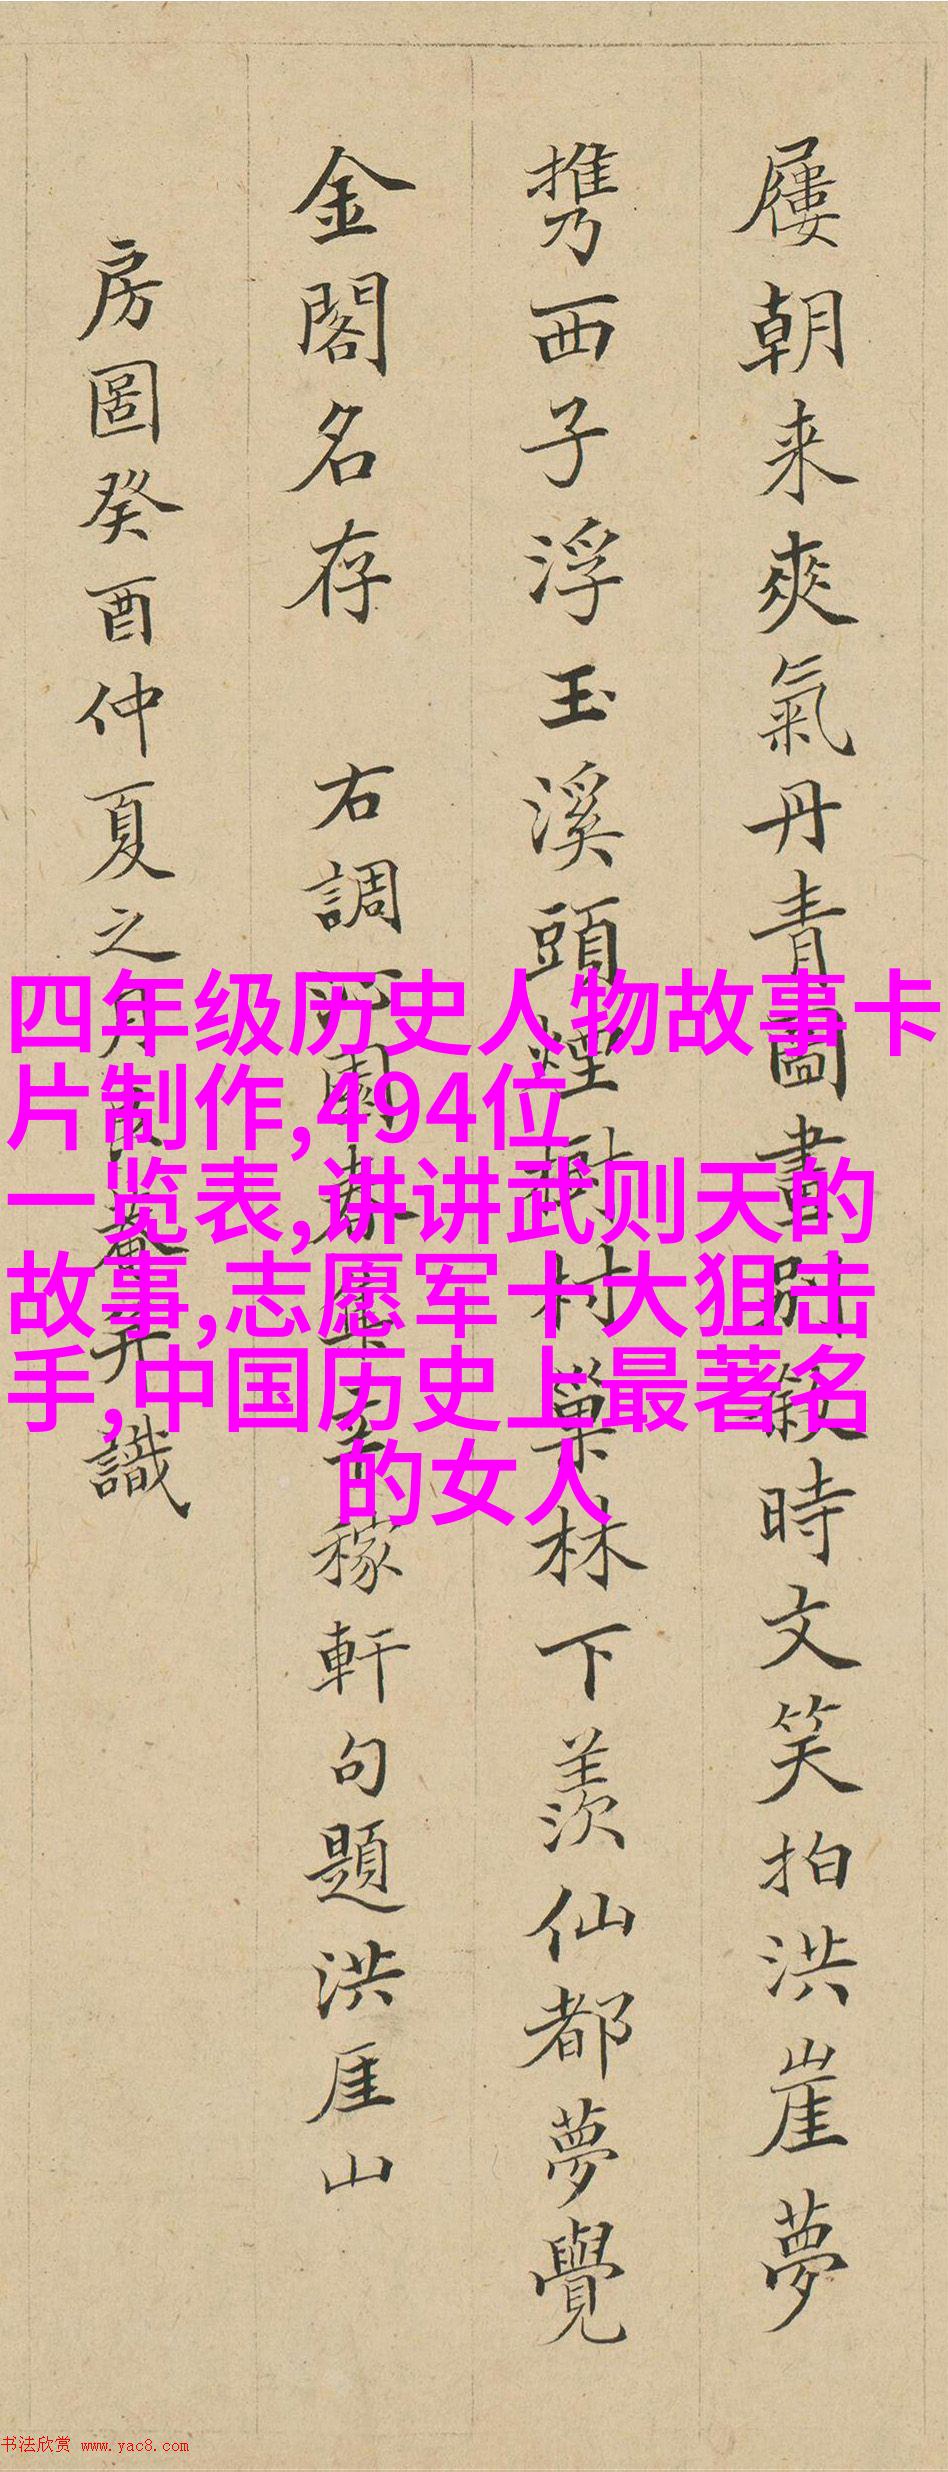 屢朝来爽氣丹青圖畫別敘時文笑拍洪崖夢
攜西子浮玉溪頭煙樹村巢林下羨仙都夢覺
金閣名存 右調沁園春集辛稼軒句題洪厓山
房圖癸酉仲夏之月 識
四年级历史人物故事卡
片制作,494位
一览表,讲讲武则天的
故事,志愿军十大狙击
手,中国历史上最著名
的女人
书法欣赏 www.yac8.com